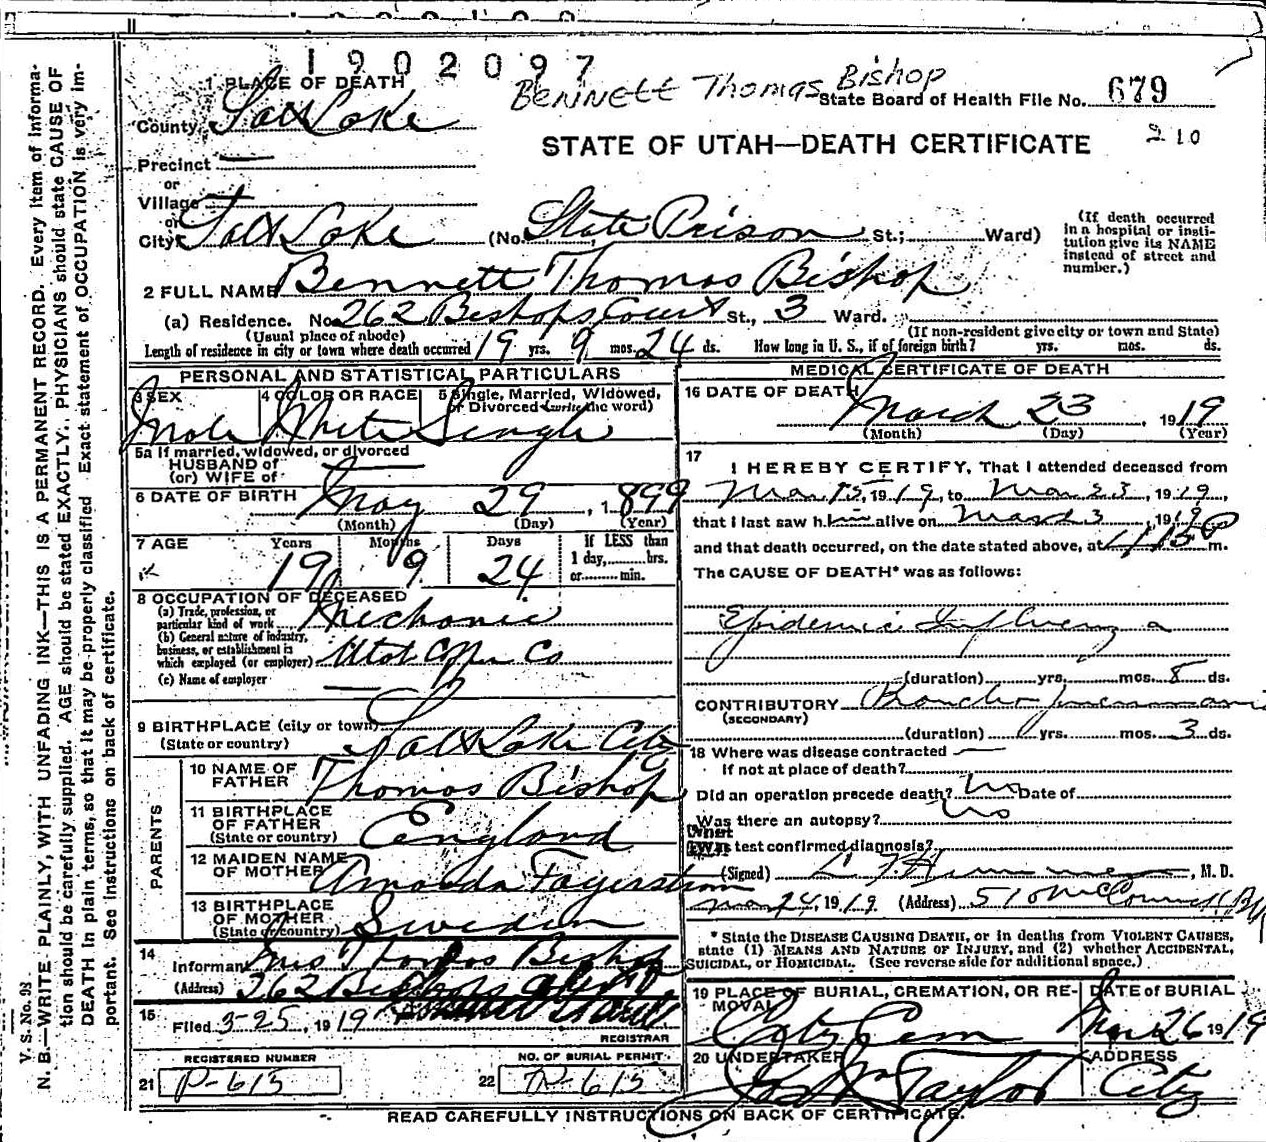 1902097
BENNETT Thomas Bishop
1 PLACE OF DEATH
State Board of Health File No. 679
County Salt Lake
210
STATE OF UTAH—DEATH CERTIFICATE
Precinct —
or
Village —
or
City Salt Lake (No. State Prison St.; Ward)
(If death occurred in a hospital or institution give its NAME instead of street and number.)
2 FULL NAME Bennett Thomas Bishop
(a) Residence. No. 262 Bishops Court St., 3 Ward.
(Usual place of abode) (If non-resident give city or town and State)
Length of residence in city or town where death occurred 19 yrs. 9 mos. 24 ds. How long in U. S., if of foreign birth? yrs. mos. ds.
PERSONAL AND STATISTICAL PARTICULARS
3 SEX 4 COLOR OR RACE 5 Single, Married, Widowed, or Divorced (write the word)
Male White Single
5a If married, widowed, or divorced
HUSBAND of
(or) WIFE of —
6 DATE OF BIRTH May 29, 1899
(Month) (Day) (Year)
7 AGE Years Months Days If LESS than
1 day, hrs.
or min.
19 9 24
8 OCCUPATION OF DECEASED
(a) Trade, profession, or
particular kind of work Mechanic
(b) General nature of industry,
business, or establishment in
which employed (or employer) Utah Copper Co
(c) Name of employer —
9 BIRTHPLACE (city or town)
(State or country) Salt Lake City
PARENTS
10 NAME OF FATHER Thomas Bishop
11 BIRTHPLACE OF FATHER (State or country) England
12 MAIDEN NAME OF MOTHER Amanda Fagerstrom
13 BIRTHPLACE OF MOTHER (State or country) Sweden
14 Informant Mrs Thomas Bishop
(Address) 262 Bishops Court
15 Filed 3-25, 1919
REGISTRAR
REGISTERED NUMBER NO. OF BURIAL PERMIT
21 P-615 22 P-615
MEDICAL CERTIFICATE OF DEATH
16 DATE OF DEATH March 23, 1919
(Month) (Day) (Year)
17 I HEREBY CERTIFY, That I attended deceased from
Mar 15, 1919, to Mar 23, 1919,
that I last saw him alive on Mar 23, 1919
and that death occurred, on the date stated above, at m.
The CAUSE OF DEATH* was as follows:
Epidemic Influenza
(duration) yrs. mos. 8 ds.
CONTRIBUTORY Broncho pneumonia
(SECONDARY)
(duration) yrs. mos. 3 ds.
18 Where was disease contracted —
if not at place of death?
Did an operation precede death? No Date of
Was there an autopsy? No
What test confirmed diagnosis?
(Signed) , M. D.
Mar 24, 1919 (Address) 510 McCornick Blk
* State the DISEASE CAUSING DEATH, or in deaths from VIOLENT CAUSES,
state (1) MEANS AND NATURE OF INJURY, and (2) whether ACCIDENTAL,
SUICIDAL, or HOMICIDAL. (See reverse side for additional space.)
19 PLACE OF BURIAL, CREMATION, OR REMOVAL DATE of BURIAL
City Cem Mar 26 1919
20 UNDERTAKER ADDRESS
Jos Wm Taylor City
READ CAREFULLY INSTRUCTIONS ON BACK OF CERTIFICATE.
V. S. No. 98
N. B.—WRITE PLAINLY, WITH UNFADING INK—THIS IS A PERMANENT RECORD. Every item of information should be carefully supplied. AGE should be stated EXACTLY. PHYSICIANS should state CAUSE OF DEATH in plain terms, so that it may be properly classified. Exact statement of OCCUPATION is very important. See instructions on back of certificate.